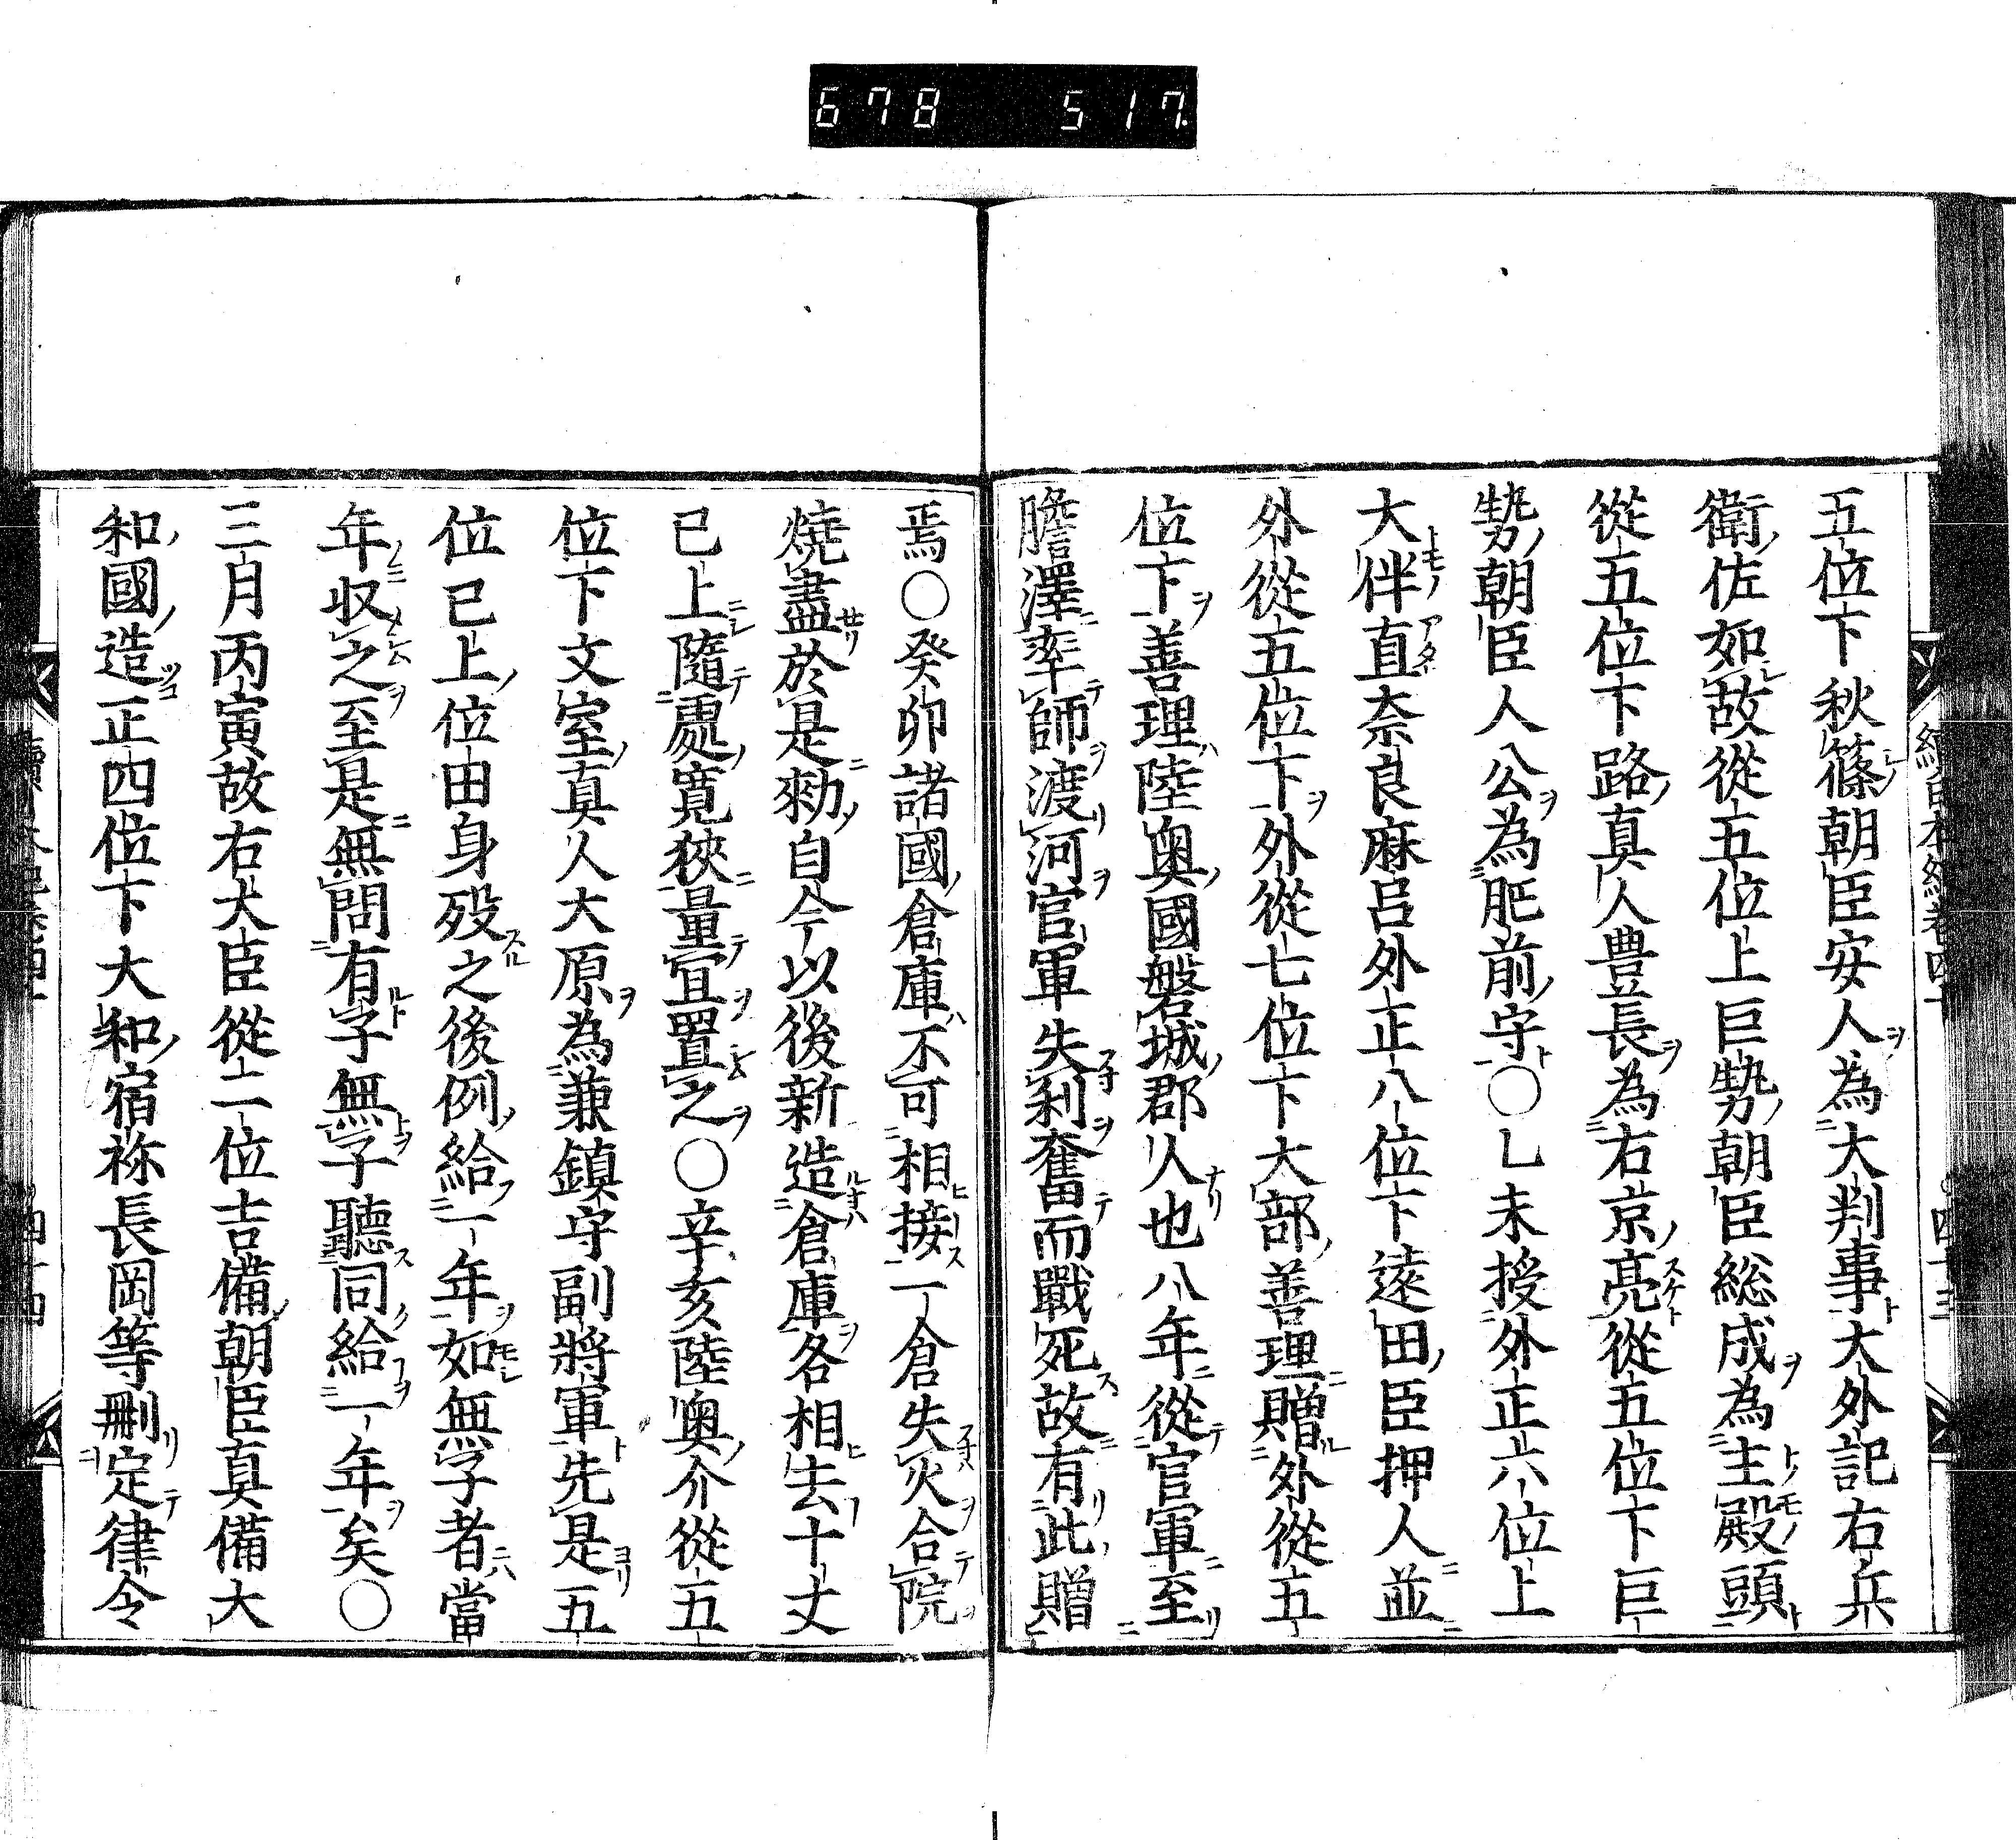 678 517
五位下秋篠朝臣安人為大判事大外記右兵
衛佐如故從五位上巨勢朝臣総成為主殿頭
從五位下路真人豊長為右京亮從五位下巨
勢朝臣人公為肥前守○乙未授外正六位上
大伴直奈良麻呂外正八位下遠田臣押人並
外從五位下外從七位下大部善理贈外從五
位下善理陸奥國磐城郡人也八年從官軍至
膽澤率師渡河官軍失利奮而戰死故有此贈
焉○癸卯諸國倉庫不可相接一倉失火合院
燒盡於是勅自今以後新造倉庫各相去十丈
已上隨處寛狹量宜置之○辛亥陸奥介從五
位下文室真人大原為兼鎮守副將軍先是五
位已上位田身歿之後例給一年如無子者當
年収之至是無問有子無子聽同給一年矣○
三月丙寅故右大臣從二位吉備朝臣真備大
和國造正四位下大和宿祢長岡等刪定律令